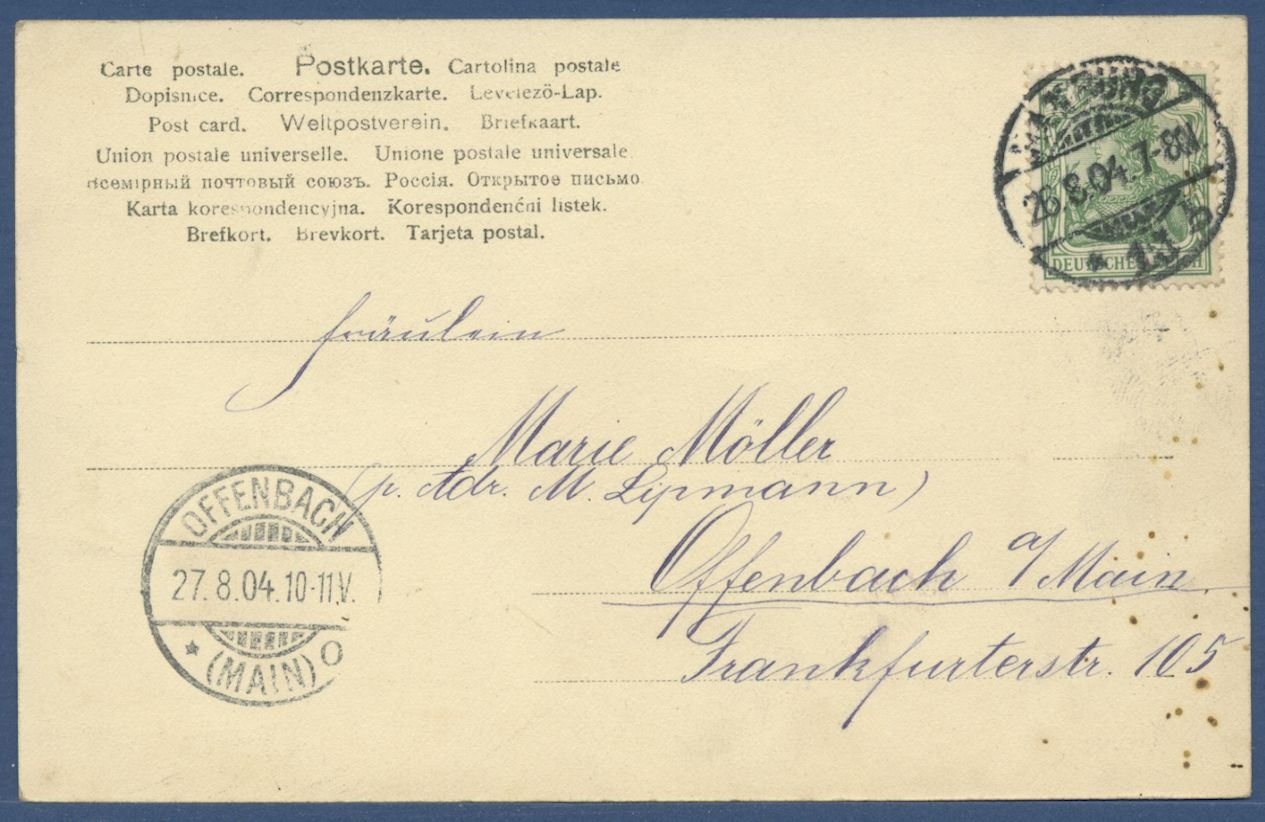 Carte postale. Postkarte. Cartolina postale
Dopisnice. Correspondenzkarte. Levelezö-Lap.
Post card. Weltpostverein. Briefkaart.
Union postale universelle. Unione postale universale
Всемірный почтовый союзъ. Россія. Открытое письмо.
Karta korespondencyjna. Korespondenčni listek.
Brefkort. Brevkort. Tarjeta postal.
26.8.04.7-8N.
DEUTSCHES REICH
Fräulein
Marie Möller
(p. Adr. M. Lipmann)
Offenbach a/Main
Frankfurterstr. 105
OFFENBACH
27.8.04.10-11V.
* (MAIN) O